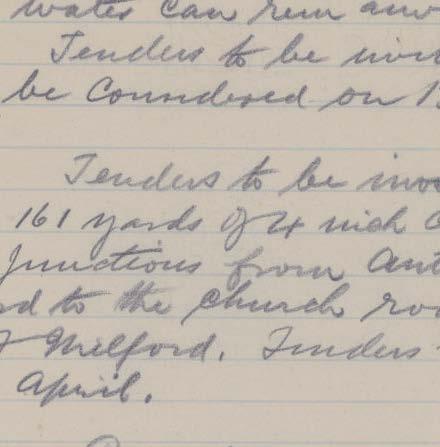 water can run
Tenders to be
be Considered on
Tenders to be
161 yards of 4 inch
junctions from
to the church
Milford. Tenders
April.